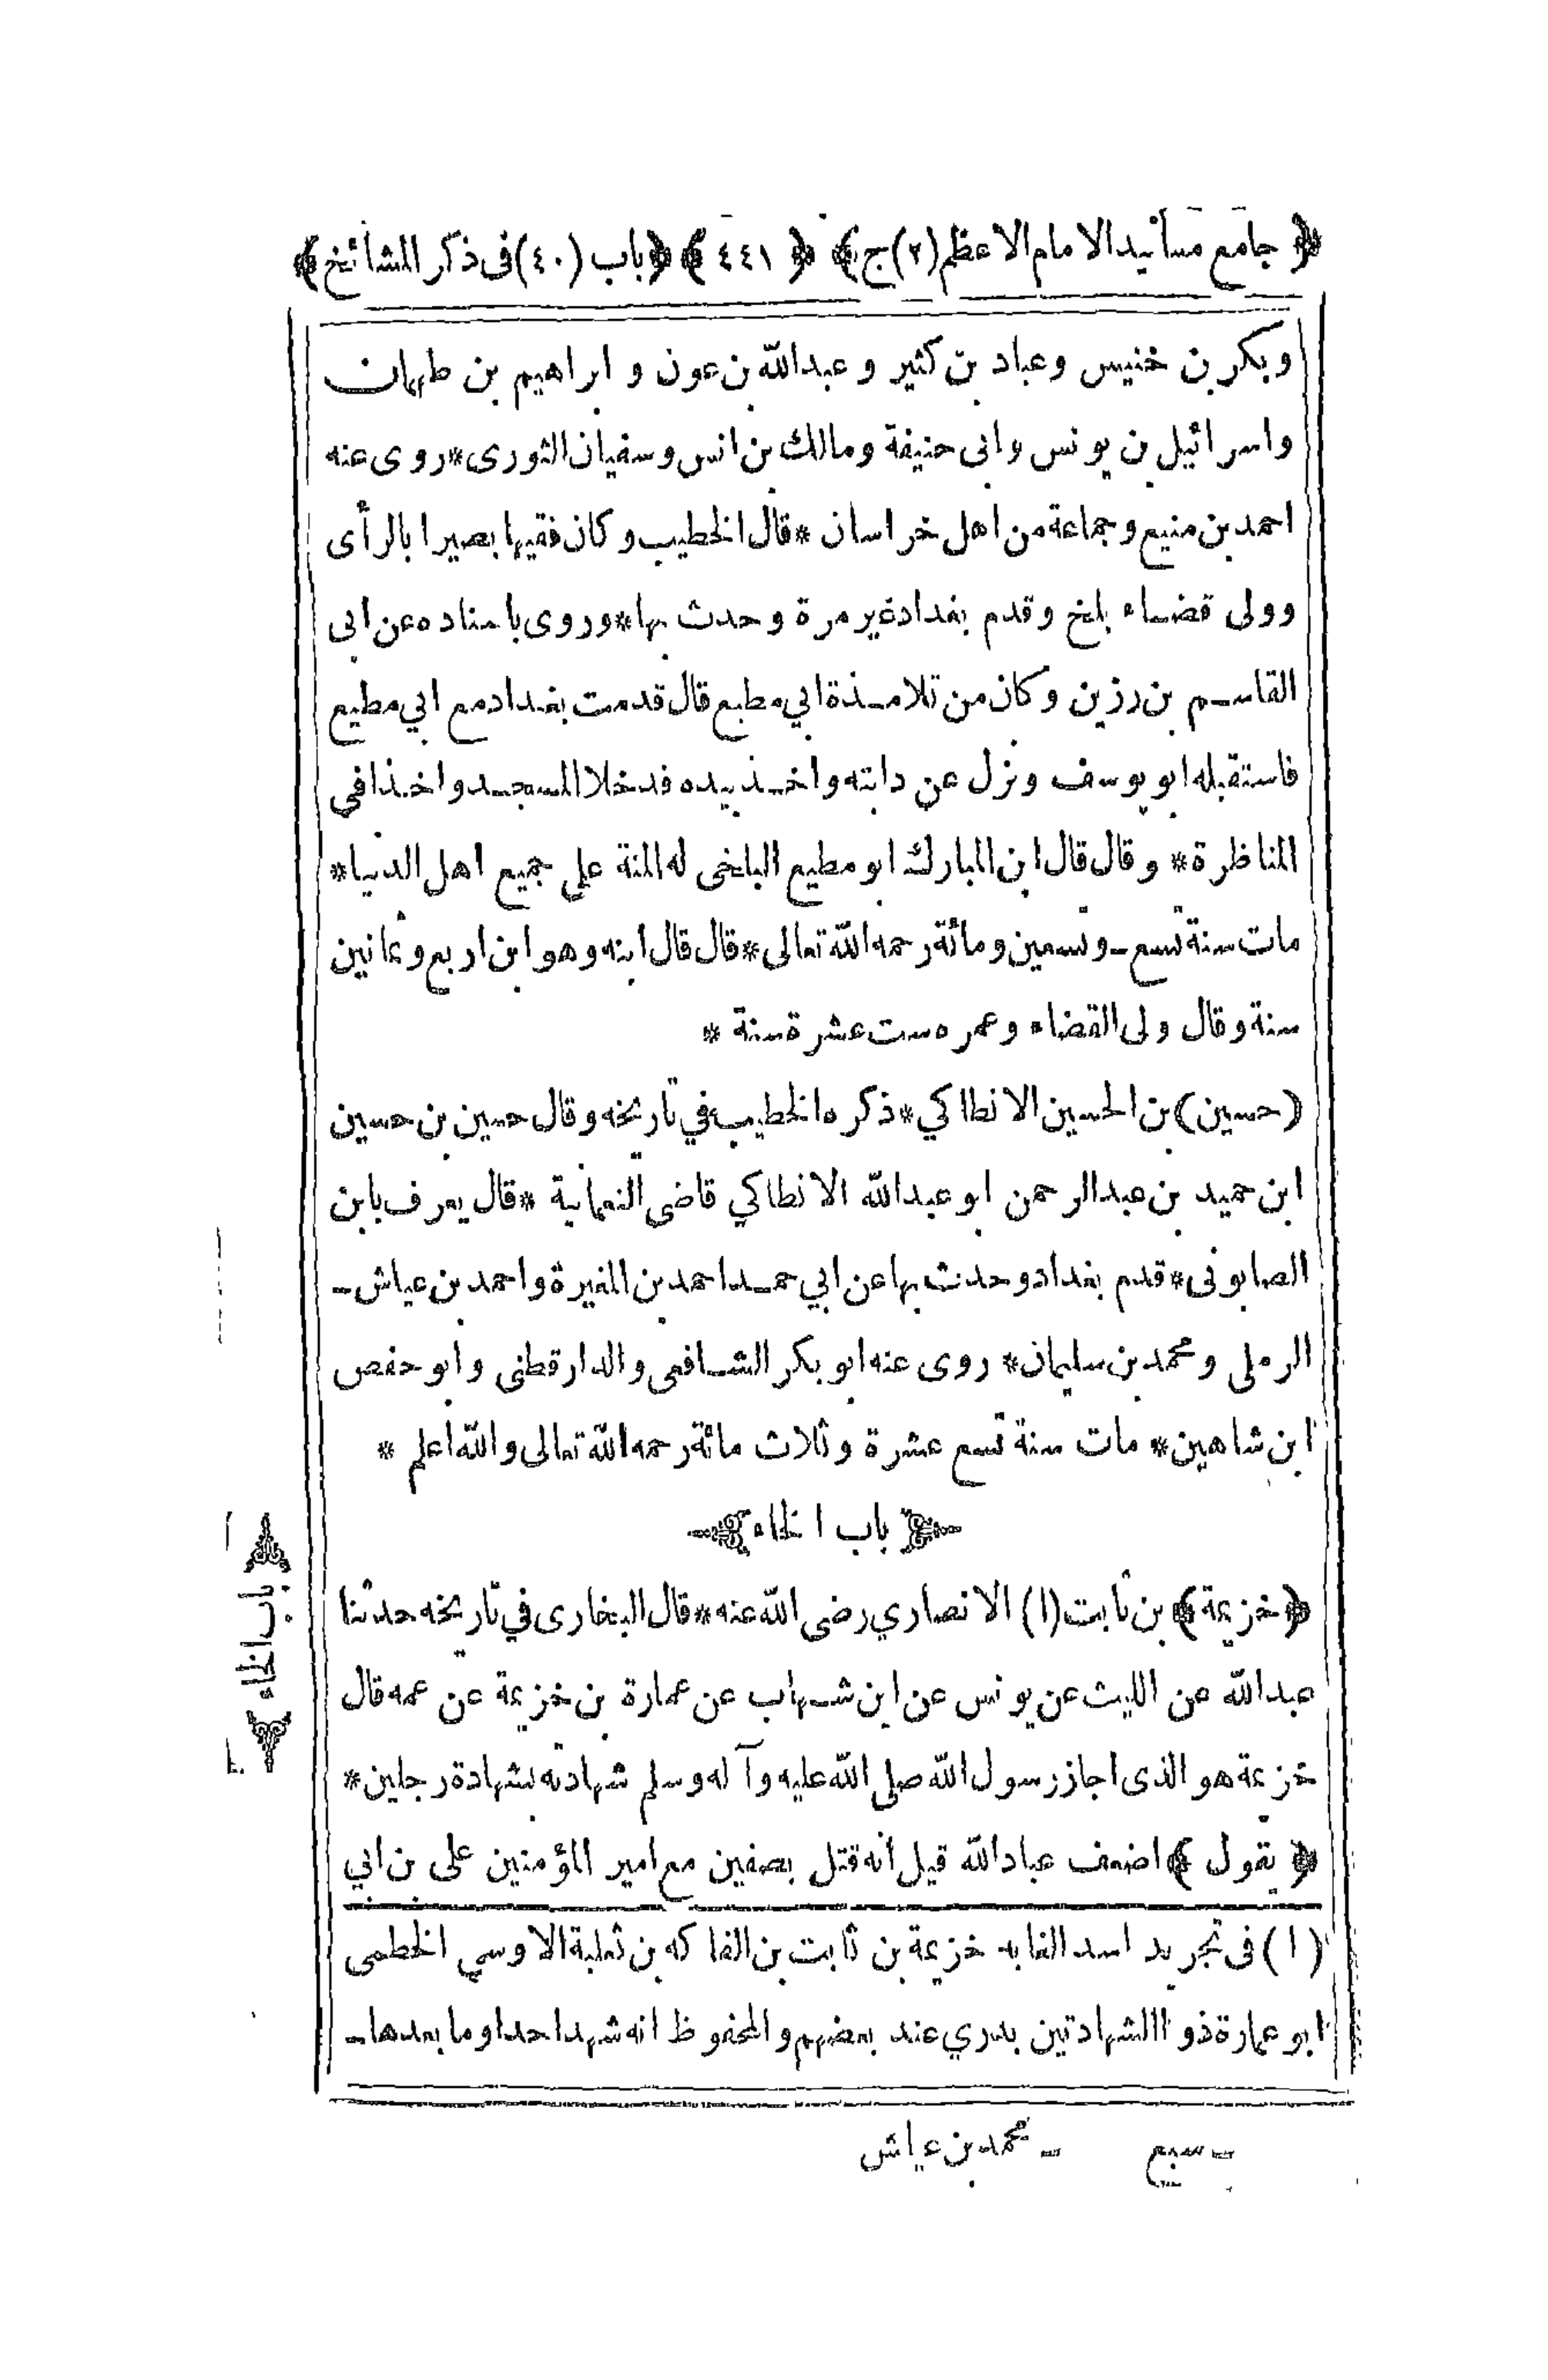 ﴿ جامع مسانيد الامام الاعظم (٢) ج ﴾ ﴿ ٤٤١ ﴾ ﴿ باب (٤٠) فى ذكر المشائخ ﴾
وبكر بن خنيس وعباد بن كثير وعبدالله بن عون و ابراهيم بن طهمان
واسرائيل بن يونس وابى حنيفة ومالك بن انس وسفيان الثورى * روى عنه
احمد بن منيع وجماعة من اهل خراسان * قال الخطيب وكان فقيها بصيرا بالرأى
وولى قضاء بلخ وقدم بغداد غير مرة وحدث بها * وروى باسناده عن ابى
القاسم بن رزين وكان من تلامذة ابي مطيع قال قدمت بغداد مع ابي مطيع
فاستقبله ابو يوسف ونزل عن دابته واخذ بيده فدخلا المسجد واخذا في
المناظرة * وقال قال ابن المبارك ابو مطيع البلخى له المنة على جميع اهل الدنيا *
مات سنة تسع ـ وتسعين ومائة رحمه الله تعالى * قال قال ابنه وهو ابن اربع وثمانين
سنة وقال ولى القضاء وعمره ست عشرة سنة *
(حسين) بن الحسين الانطاكي * ذكره الخطيب في تاريخه وقال حسين بن حسين
ابن حميد بن عبدالرحمن ابو عبدالله الانطاكي قاضى النعمانية * قال يعرف بابن
الصابونى * قدم بغداد وحدث بها عن ابي حمد احمد بن المغيرة واحمد بن عياش ـ
الرملى ومحمد بن سليمان * روى عنه ابو بكر الشافعى والدارقطنى وابو حفص
ابن شاهين * مات سنة تسع عشرة وثلاث مائة رحمه الله تعالى والله اعلم *
باب الخاء
باب الخاء
﴿ خزيمة ﴾ بن ثابت (١) الانصاري رضى الله عنه * قال البخارى في تاريخه حدثنا
عبدالله عن الليث عن يونس عن ابن شهاب عن عمارة بن خزيمة عن عمه قال
خزيمة هو الذى اجاز رسول الله صلى الله عليه وآله وسلم شهادته بشهادة رجلين *
﴿ يقول ﴾ اضعف عباد الله قيل أنه قتل بصفين مع امير المؤمنين على بن ابي
(١) فى تجريد اسد الغابه خزيمة بن ثابت بن الفاكه بن ثعلبة الاوسي الخطمى
ابو عمارة ذو االشهادتين بدري عند بعضهم والمحفوظ انه شهد احدا وما بعدها ـ
ـ سبع ـ محمد بن عياش